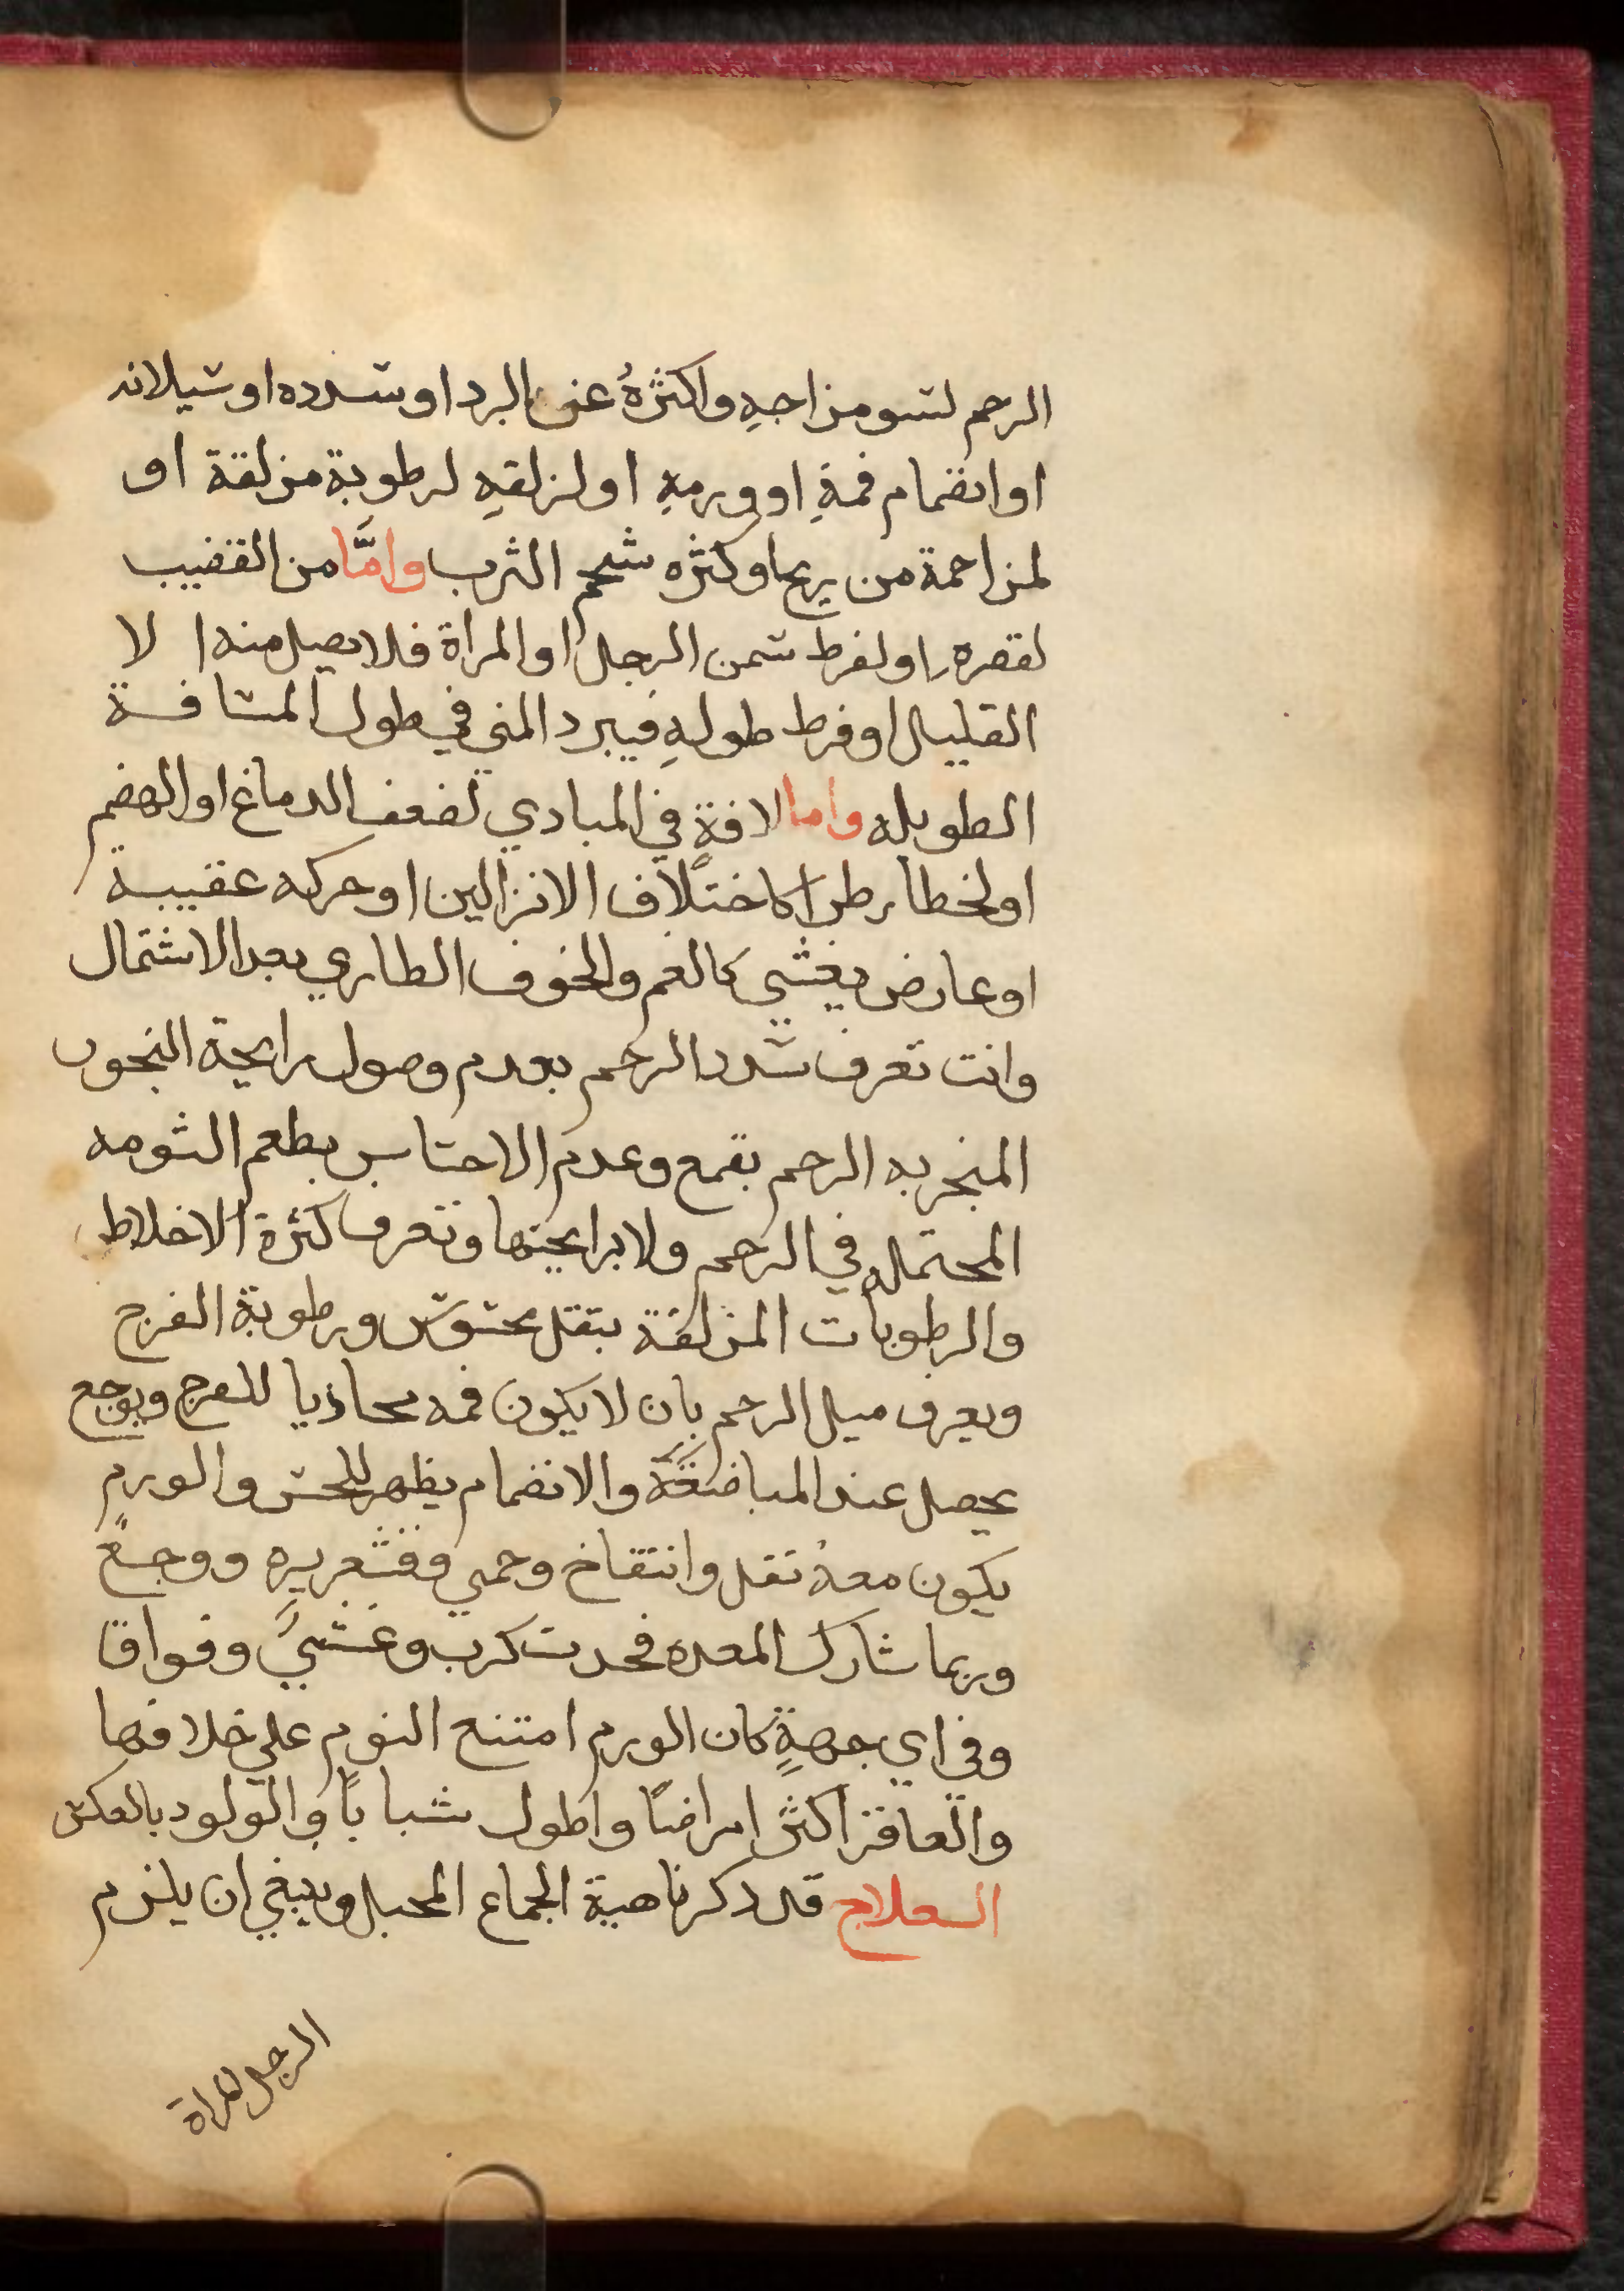 الرحم لسو مزاجهِ واكثرهُ عن البرد او سدده او سيلانه
او انضمام فمهِ او ورمهِ او لزلقهِ لرطوبة مزلقة او
لمزاحمة من ريح او كثره شحم الثرب وامَّا من القضيب
لقصره او لفرط سمن الرجل او المراة فلا يصل منه ا لا
القليل او فرط طولهِ فيبرد المني في طول المسافة
الطويله واما لافةٍ في المبادي لضعف الدماغ او الهضم
او لخطا رطرا كاختلاف الانزالين او حركه عقيبه
او عارض يغشي كالغم والخوف الطاري بعد الاشتمال
وانت تعرف سدد الرحم بعدم وصول رايحة البخور
المبخر به الرحم بقمع وعدم الاحساس بطعم الثومه
المحتمله في الرحم ولا برايحتها وتعرف كثرة الاخلاط
والرطوبات المزلقة بثقل محسوس ورطوبة الفرج
ويعرف ميل الرحم بان لا يكون فمه محاذيا للفرج وبوجع
يحصل عند المباضعَة والانضمام يظهر للحس والورم
يكون معهُ ثقل وانتفاخ وحمي وقشعريره ووجعٌ
وربما شارك المعده فحدث كرب وغشيَّ وفواق
وفي اي جهةٍ كان الورم امتنع النوم علي خلافها
والعاقر اكثر امراضًا واطول شبابًا والولود بالعكس
العلاج قد ذكرنا هية الجماع المحبل وينبغي ان يلزم
الرجل المراة